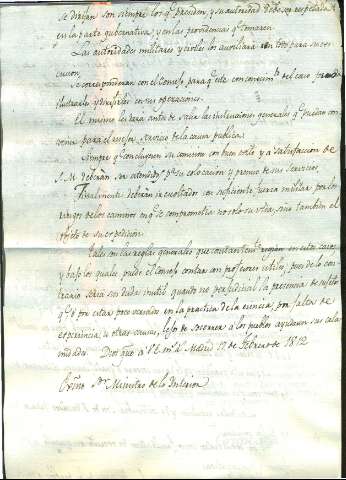 se dirijan son siempre los qe presidan, y su autoridad debe ser respetada
en la parte gubernativa, y en las providencias qe tomaren.
Las autoridades militares y civiles los auxiliarán en todo para su eje
cucion.
Se corresponderan con el Consejo para qe este con conocimto del caso pueda
ilustrarlos y dirigirlos en sus operaciones.
El mismo les dara antes de salir las instrucciones generales qe puedan con
venir para el mejor servicio de la causa publica.
Siempre qe concluyesen su comision con buen exito y a satisfaccion de
S. M. deberán ser atendidos pa su colocacion y premio de sus servicios.
Finalmente deberán ir escoltados con suficiente fuerza militar por los
riesgos de los caminos en qe se compromete no solo su vida, sino tambien el
objeto de su expedicion.
Tales son las reglas generales que constantemte regian en estos casos
y bajo los quales puede el Consejo contar con profesores utiles, pues de lo con
trario seria sin duda inutil, quanto no perjudicial la presencia de sugetos
qe ó por estar poco versados en la practica de la ciencia, por falta de
experiencia, u otras causas, lejos de socorrer a los pueblos ayudaran sus cala
midades. Dios gue a V.E. ms as Madrid 12 de Febrero de 1812
Exmo Sor Ministro de lo Interior